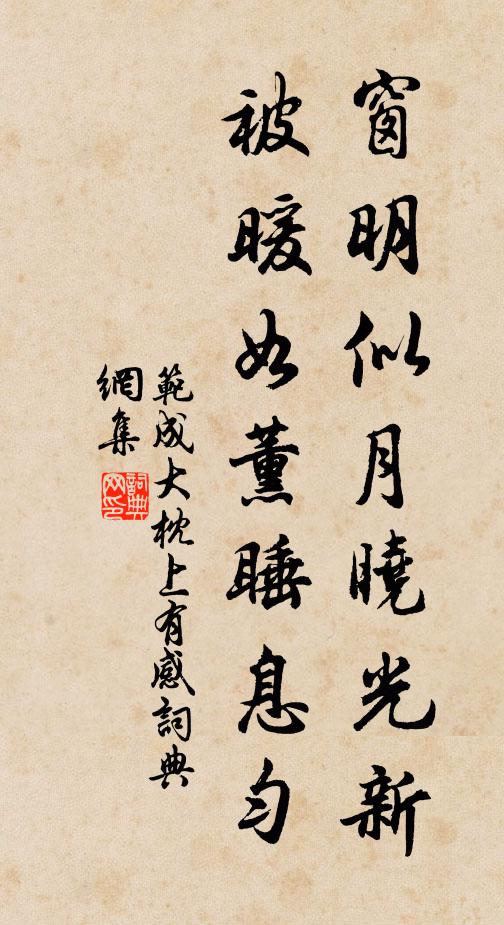 窗明似月曉光新
被暖如薰睡息勻
範成大枕上有感詞典
網集
詞典
网印